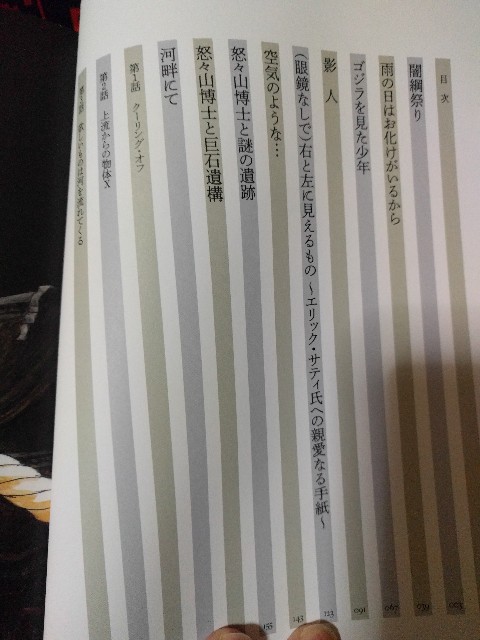 目次
闇綱祭り
雨の日はお化けがいるから
ゴジラを見た少年
影人
(眼鏡なしで)右と左に見えるもの 〜エリック・サティ氏への親愛なる手紙〜
空気のような…
怒々山博士と謎の遺跡
怒々山博士と巨石遺構
河畔にて
第1話 クーリング・オフ
第2話 上流からの物体X
第3話 欲しいものは河を流れてくる
003
039
067
091
123
143
155